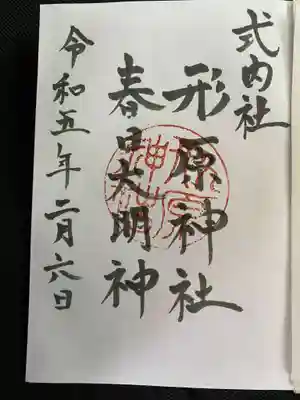 式内社
形原神社
春日大明神
令和五年二月六日